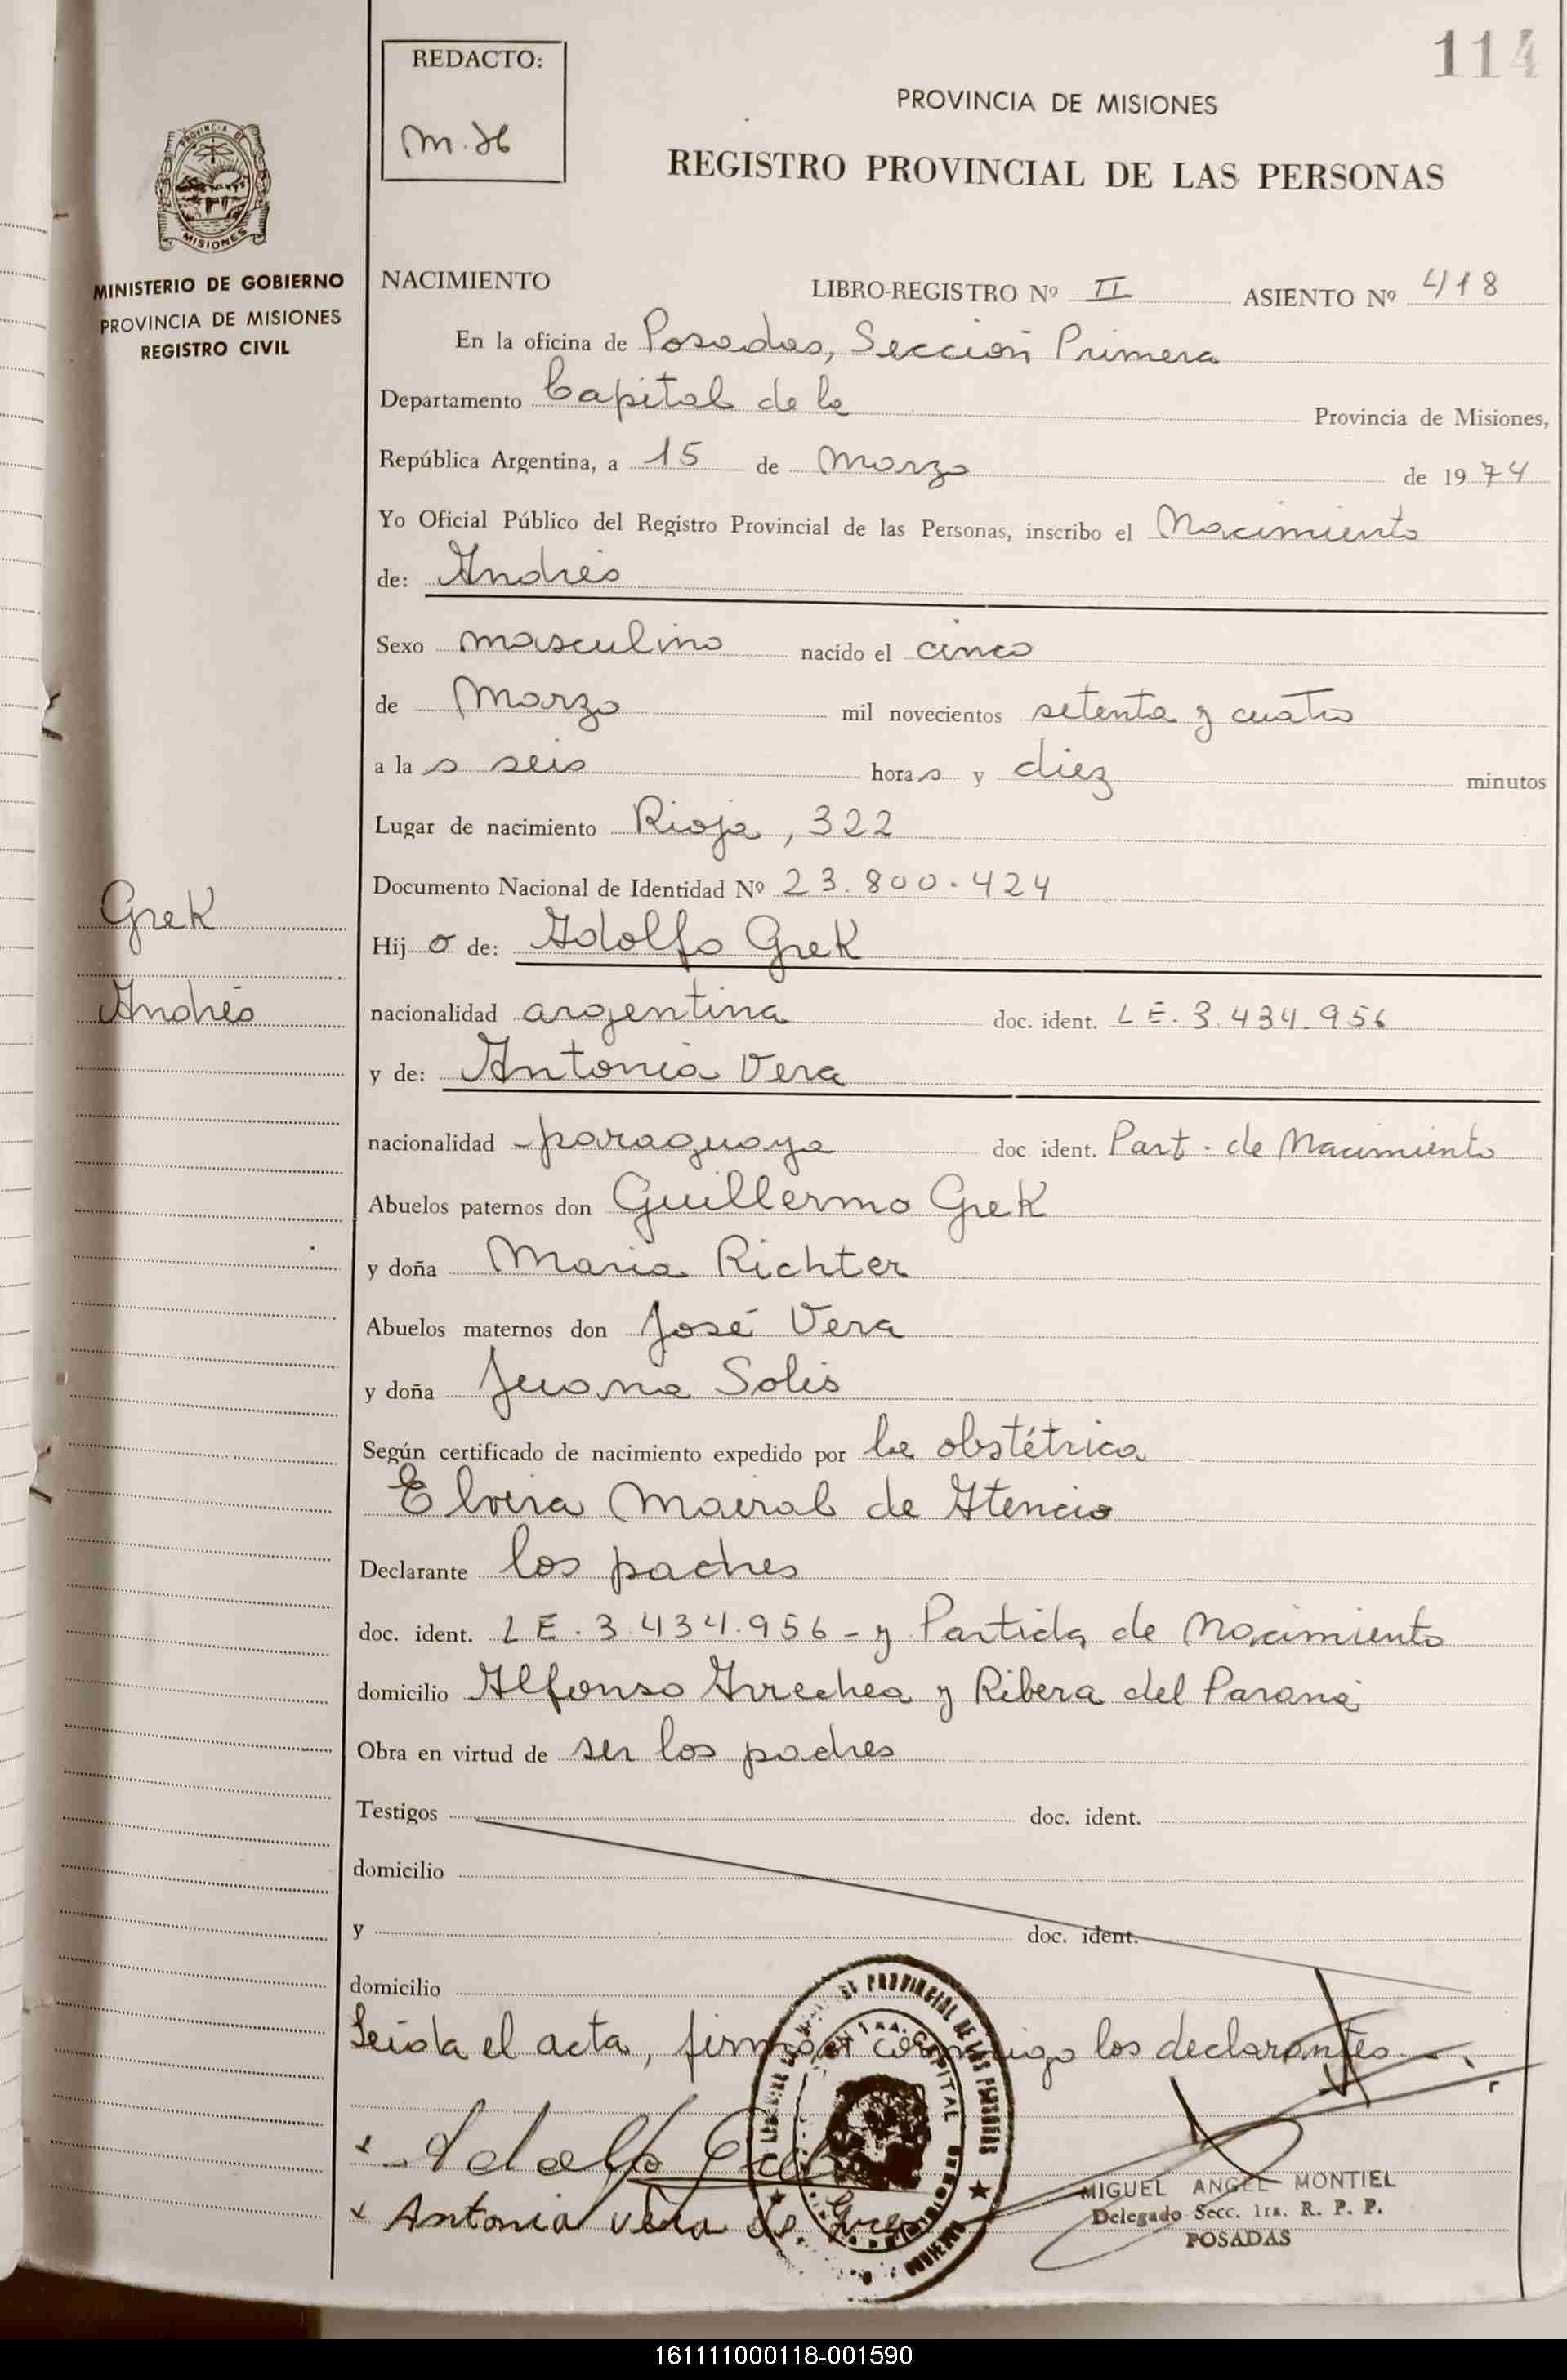 114
REDACTO:
M.H
PROVINCIA DE MISIONES
REGISTRO PROVINCIAL DE LAS PERSONAS
PROVINCIA DE
MISIONES
MINISTERIO DE GOBIERNO
PROVINCIA DE MISIONES
REGISTRO CIVIL
NACIMIENTO LIBRO-REGISTRO Nº II ASIENTO Nº 418
En la oficina de Posadas, Sección Primera
Departamento Capital de la Provincia de Misiones,
República Argentina, a 15 de Marzo de 1974
Yo Oficial Público del Registro Provincial de las Personas, inscribo el Nacimiento
de: Andrés
Sexo masculino nacido el cinco
de Marzo mil novecientos setenta y cuatro
a la s seis horas y diez minutos
Lugar de nacimiento Rioja, 322
Documento Nacional de Identidad Nº 23.800.424
Grek
Hijo de: Adolfo Grek
Andrés
nacionalidad argentina doc. ident. LE. 3.434.956
y de: Antonia Vera
nacionalidad paraguaya doc ident. Part. de Nacimiento
Abuelos paternos don Guillermo Grek
y doña Maria Richter
Abuelos maternos don José Vera
y doña Juana Solis
Según certificado de nacimiento expedido por la obstétrica
Elvira Mairal de Atencio
Declarante los padres
doc. ident. LE. 3.434.956 - y Partida de Nacimiento
domicilio Alfonso Arrechea y Ribera del Paraná
Obra en virtud de ser los padres
Testigos doc. ident.
domicilio
y doc. ident.
domicilio
Leida el acta, firman conmigo los declarantes
x Adolfo Grek
x Antonia Vera de Grek
MIGUEL ANGEL MONTIEL
Delegado Secc. 1ra. R. P. P.
POSADAS
161111000118-001590